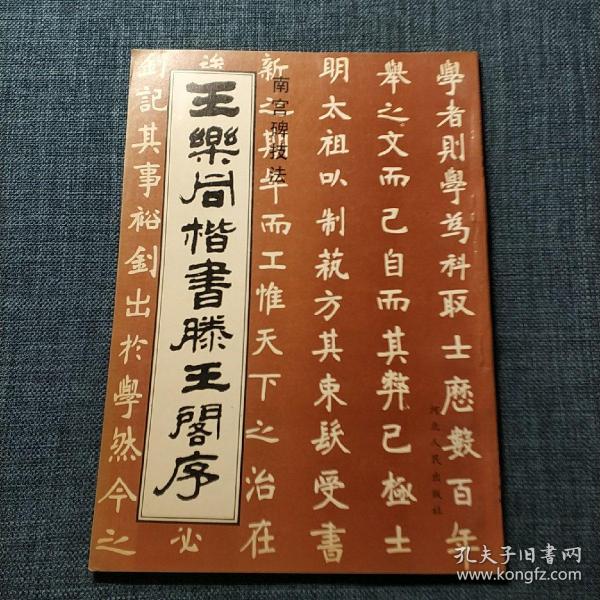 王樂同楷書滕王閣序
南宫碑技法
學者則學為科取士歷數百年
舉之文而已自而其弊已極士
明太祖以制蓺方其束髮受書
新之期年而工惟天下之治在
必
劄記其事裕劄出於學然今之
河北人民出版社
孔夫子旧书网
www.kongfz.com